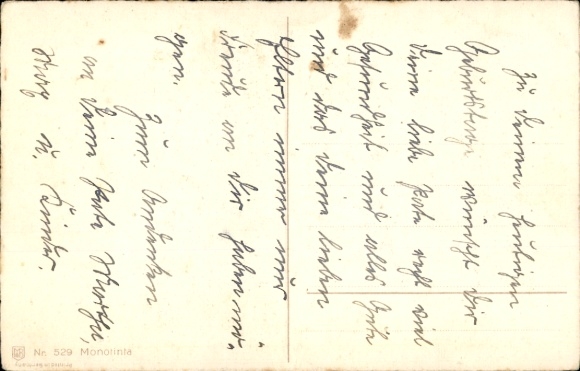 Zu Deinem heutigen
Geburtstage wünscht Dir
Deine liebe Pate recht viel
Gesundheit und alles Gute
und das Deine lieben
Eltern immer nur
Freude an Dir haben mö-
gen.
Zum Andenken
an Deine Pate Martha,
u. Kinder.
Nr. 529 Monotinta
Printed in Germany